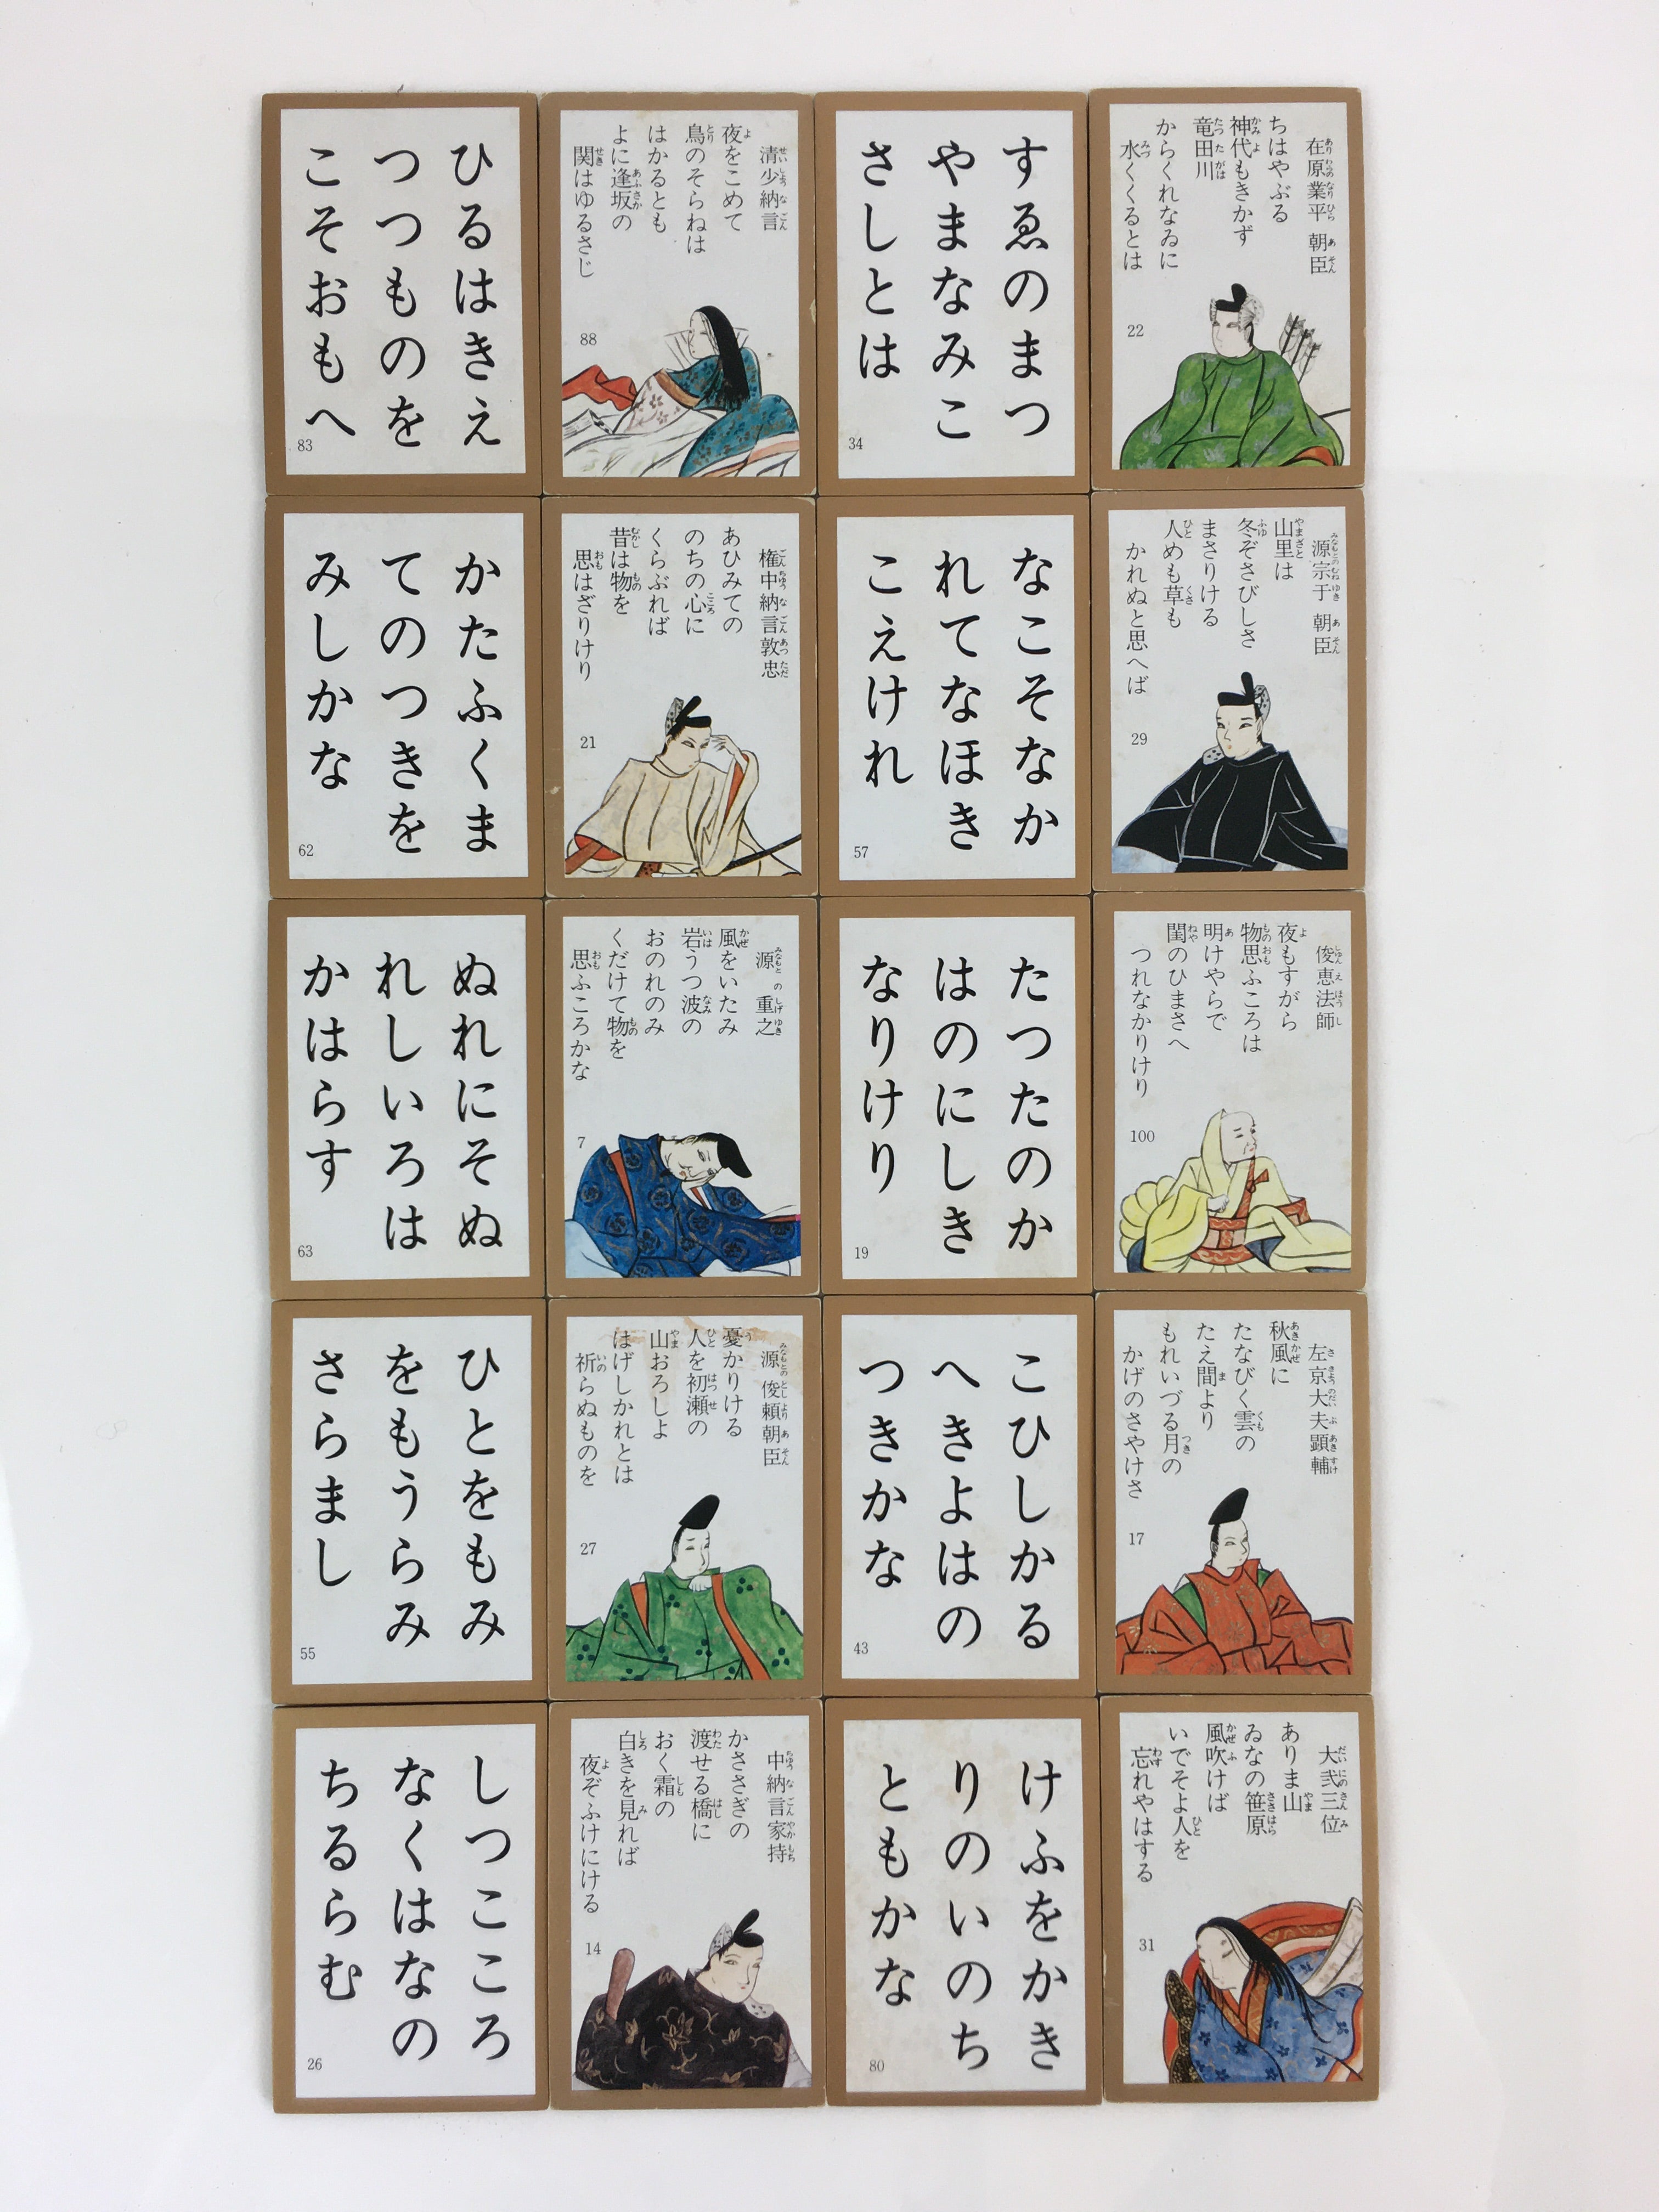 在原業平朝臣
ちはやぶる
神代もきかず
竜田川
からくれなゐに
水くくるとは
22
すゑのまつ
やまなみこ
さしとは
34
清少納言
夜をこめて
鳥のそらねは
はかるとも
よに逢坂の
関はゆるさじ
88
ひるはきえ
つつものを
こそおもへ
83
源宗于朝臣
山里は
冬ぞさびしさ
まさりける
人めも草も
かれぬと思へば
29
なこそなか
れてなほき
こえけれ
57
権中納言敦忠
あひみての
のちの心に
くらぶれば
昔は物を
思はざりけり
21
かたふくま
てのつきを
みしかな
62
俊恵法師
夜もすがら
物思ふころは
明けやらで
閨のひまさへ
つれなかりけり
100
たつたのか
はのにしき
なりけり
19
源重之
風をいたみ
岩うつ波の
おのれのみ
くだけて物を
思ふころかな
7
ぬれにそぬ
れしいろは
かはらす
63
左京大夫顕輔
秋風に
たなびく雲の
たえ間より
もれいづる月の
かげのさやけさ
17
こひしかる
へきよはの
つきかな
43
源俊頼朝臣
憂かりける
人を初瀬の
山おろしよ
はげしかれとは
祈らぬものを
27
ひとをもみ
をもうらみ
さらまし
55
大弐三位
ありま山
ゐなの笹原
風吹けば
いでそよ人を
忘れやはする
31
けふをかき
りのいのち
ともかな
80
中納言家持
かささぎの
渡せる橋に
おく霜の
白きを見れば
夜ぞふけにける
14
しつこころ
なくはなの
ちるらむ
26